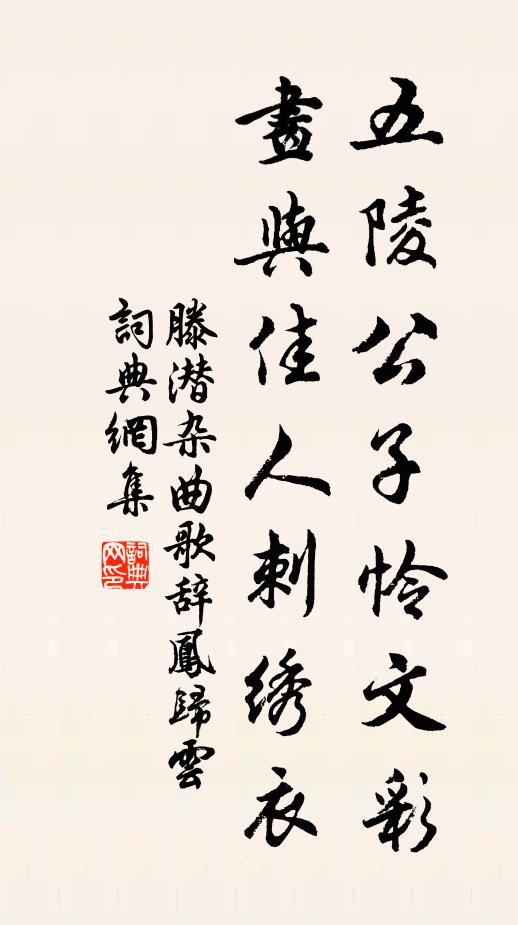 五陵公子怜文彩
畫與佳人刺绣衣
滕潜杂曲歌辞鳳歸雲
詞典網集
詞典网印